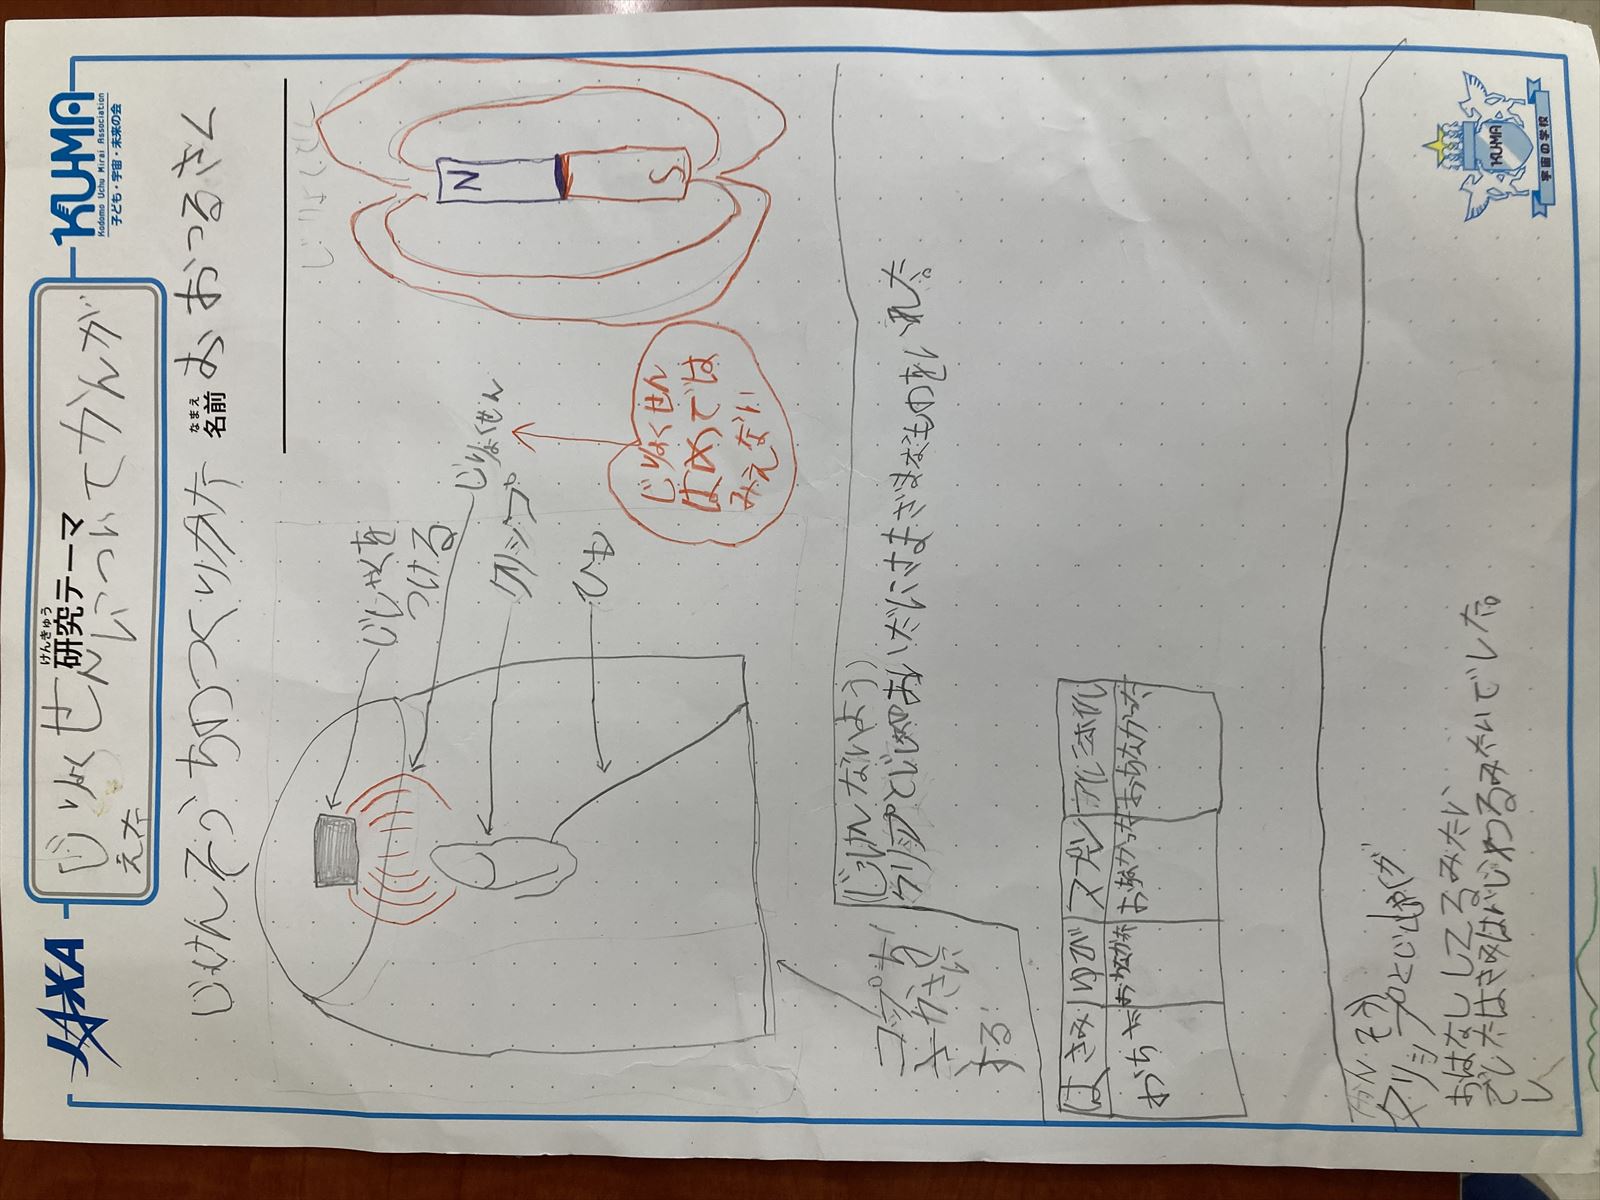 JAXA
けんきゅう
研究テーマ
KUMA
Kodomo Uchu Mirai Association
子ども・宇宙・未来の会
じりょくせんについてかんが
えた
じっけんそうちのつくりかた
なまえ
名前
おおつるさん
じしゃくを
つける
じりょくせん
クリップ
ひも
N
S
じりょくせん
はめでは
みえない
コップを
さかさに
する
(じっけんないよう)
クリップとじしゃくのあいだにさまざまなものをいれた。
はさみ ゆび マグネット
おちた おちなかった おちなかった おちなかった
かんそう
クリップとじしゃくが
おはなししてるみたい
でしたはさみはいじわるみたいでした。
KUMA
宇宙の学校